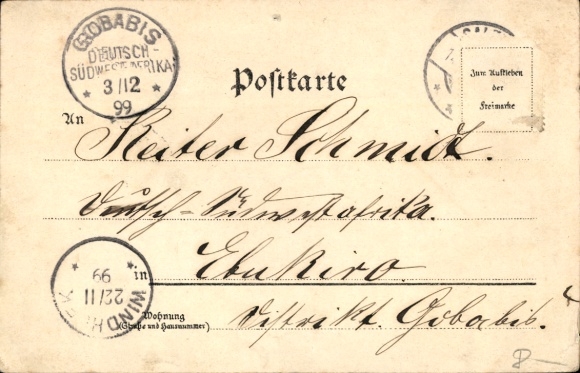 GOBABIS
DEUTSCH-
SÜDWESTAFRIKA
3/12
99
Postkarte
Zum Aufkleben
der
Freimarke
An
Reiter Schmidt.
Deutsch-Südwestafrika.
in Ebukiro.
WINDHOEK
22/11
99
Wohnung
(Straße und Hausnummer)
Distrikt. Gobabis.